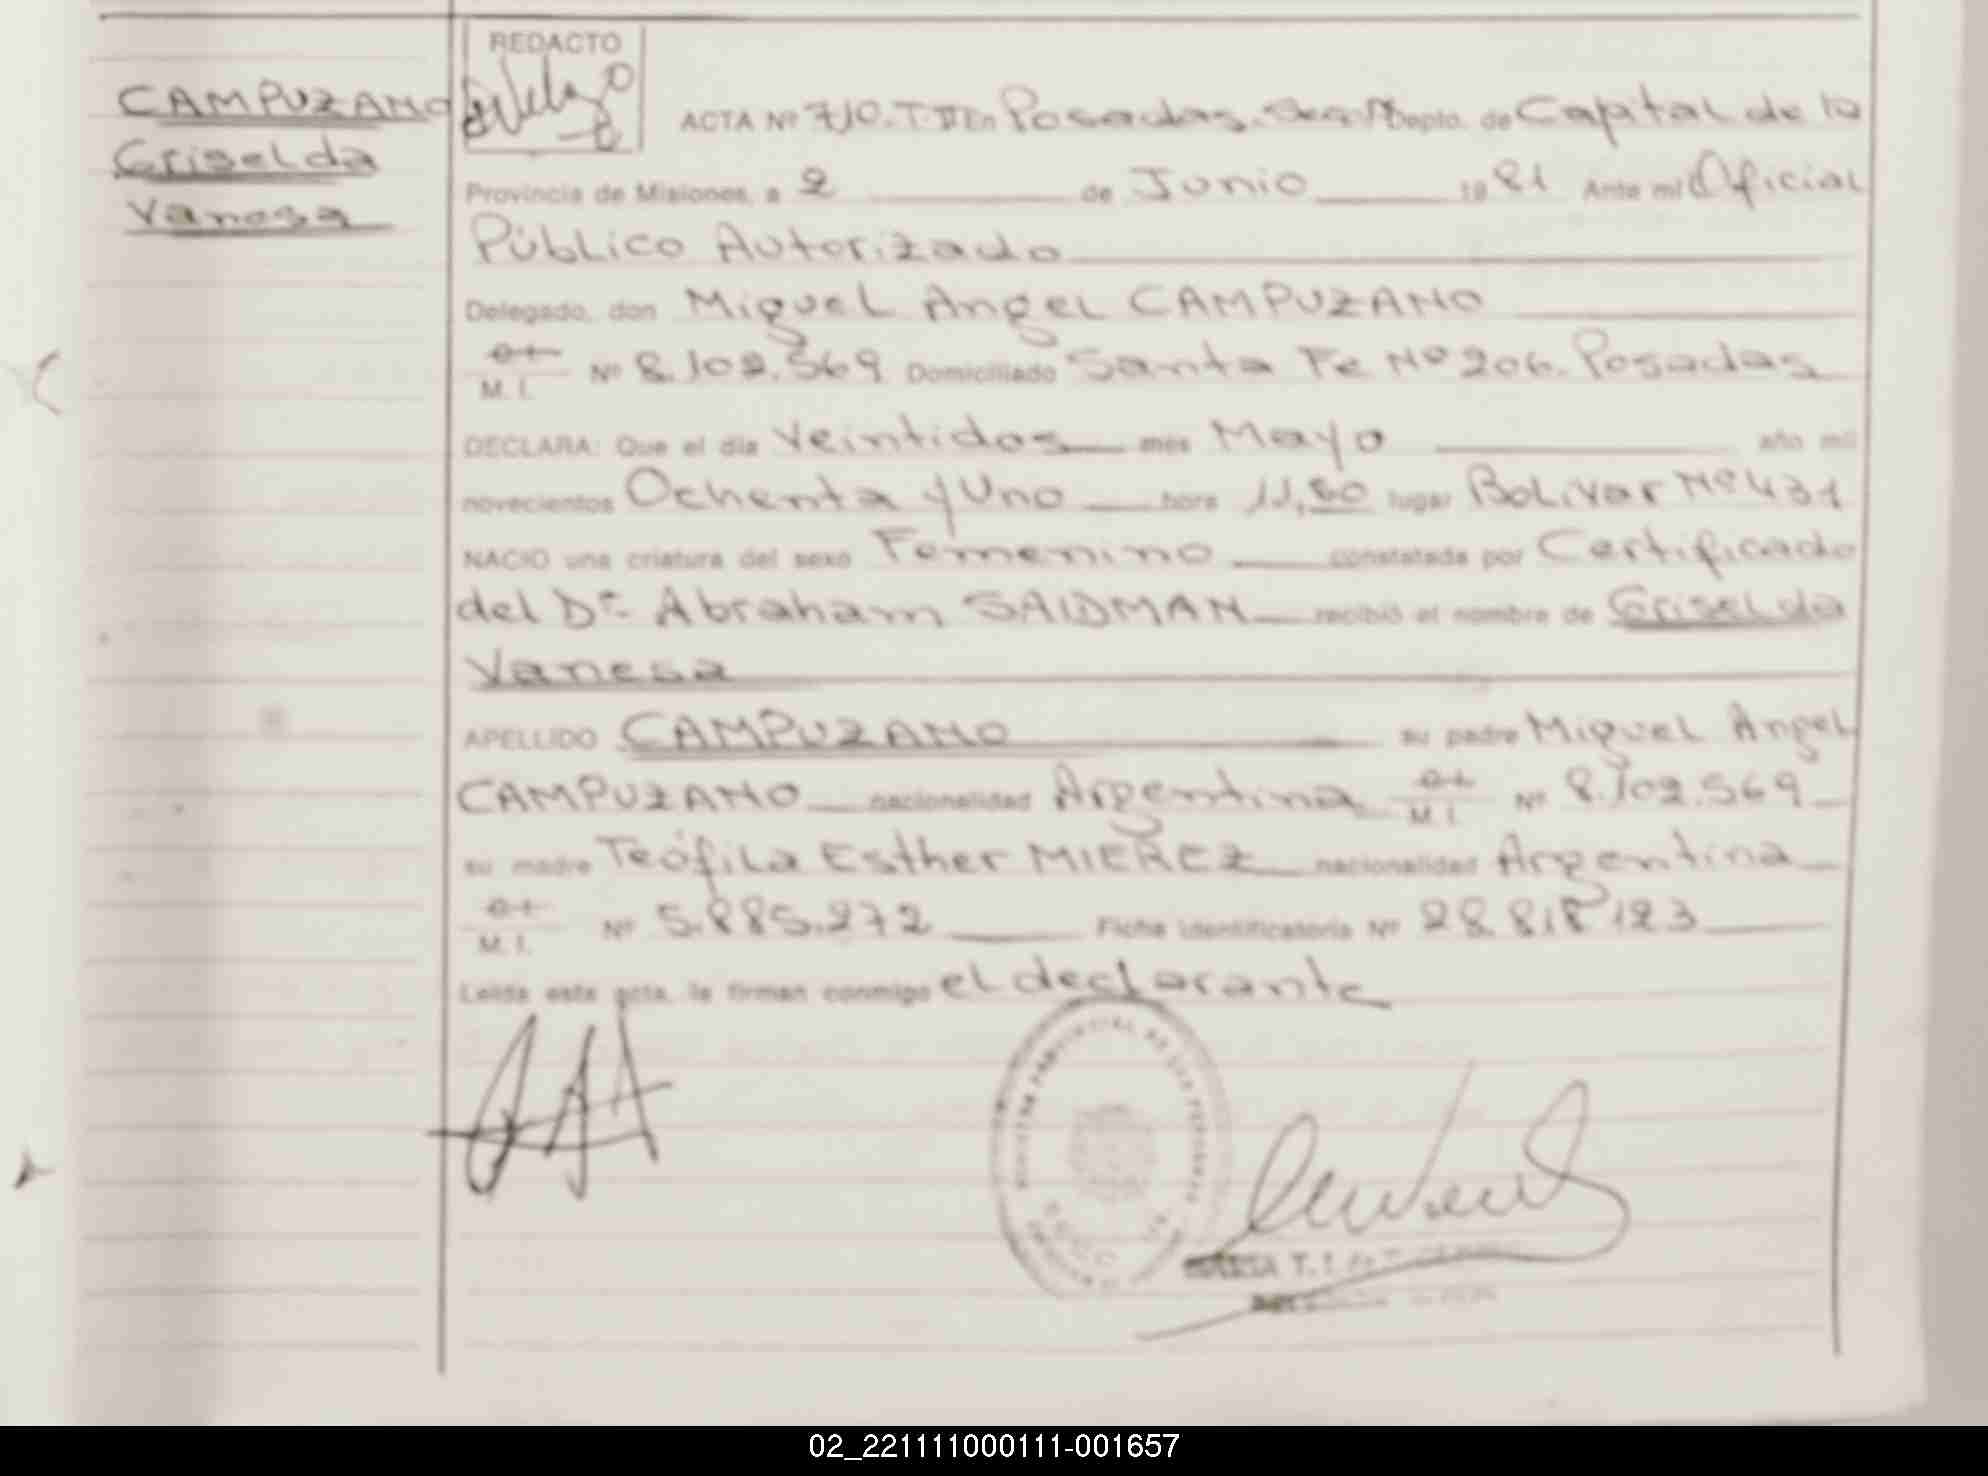 REDACTO
CAMPUZANO
Griselda
Vanesa
ACTA Nº 710.T.II En Posadas. Depto. de Capital de la
Provincia de Misiones, a 2 de Junio 1981 Ante mi Oficial
Público Autorizado
Delegado, don Miguel Angel CAMPUZANO
M. I. Nº 8.102.569 Domiciliado Santa Fe Nº 206. Posadas
DECLARA: Que el día Veintidos mes Mayo año mil
novecientos Ochenta y Uno hora lugar Bolivar Nº 431
NACIO una criatura del sexo Femenino constatada por Certificado
del Dr. Abraham SAIDMAN recibió el nombre de Griselda
Vanesa
APELLIDO CAMPUZANO su padre Miguel Angel
CAMPUZANO nacionalidad Argentina M. I. Nº 8.102.569
su madre Teófila Esther MIEREZ nacionalidad Argentina
M. I. Nº 5.885.272 Ficha identificatoria Nº 28.818.123
Leída esta acta, la firman conmigo el declarante
02_221111000111-001657